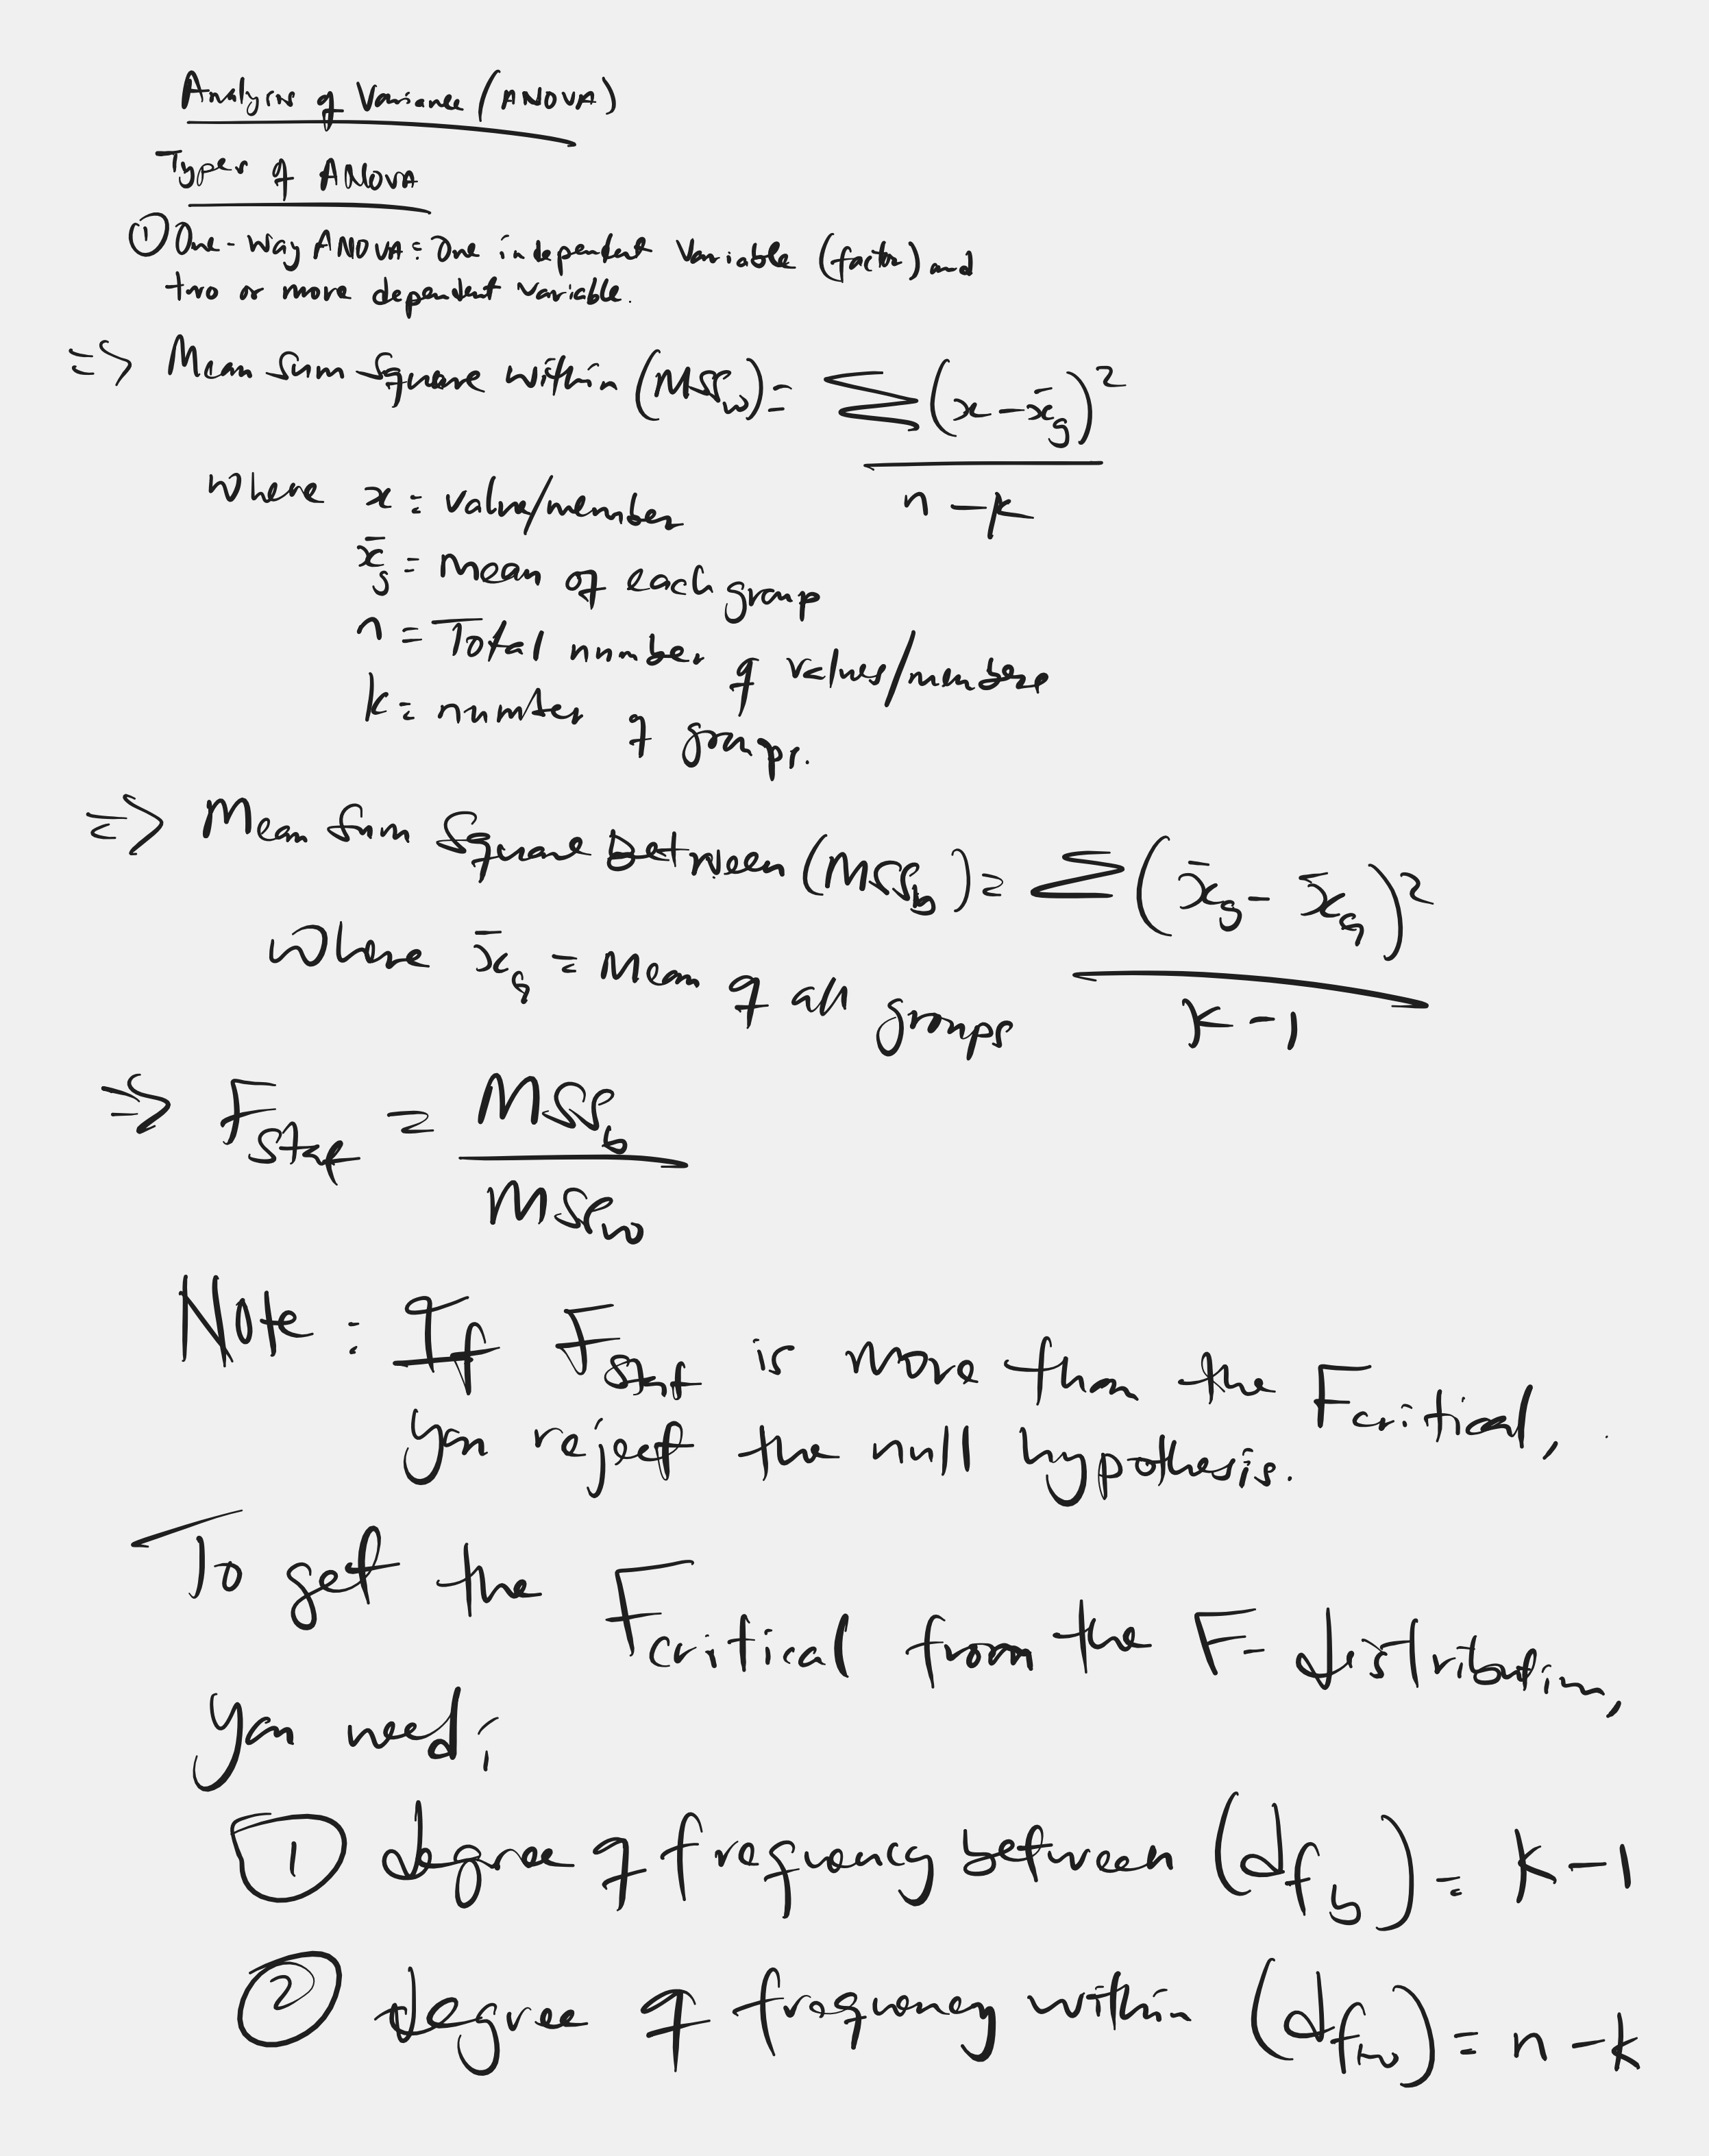 Analysis of Variance (ANOVA)
Types of ANOVA
① One-way ANOVA: One independent Variable (factor) and
two or more dependent variable.
=> Mean Sum Square within (MSSw) = Σ(x - x̄g)² / n - k
where x = value/member
x̄g = mean of each group
n = Total number of values/members
k = number of groups.
=> Mean Sum Square Between (MSSb) = Σ(x̄g - x̄G)² / k - 1
where x̄G = Mean of all groups
=> Fstat = MSSb / MSSw
Note: If Fstat is more than the Fcritical,
you reject the null hypothesis.
To get the Fcritical from the F distribution,
you need;
① degree of frequency between (dfb) = k - 1
② degree of frequency within (dfw) = n - k